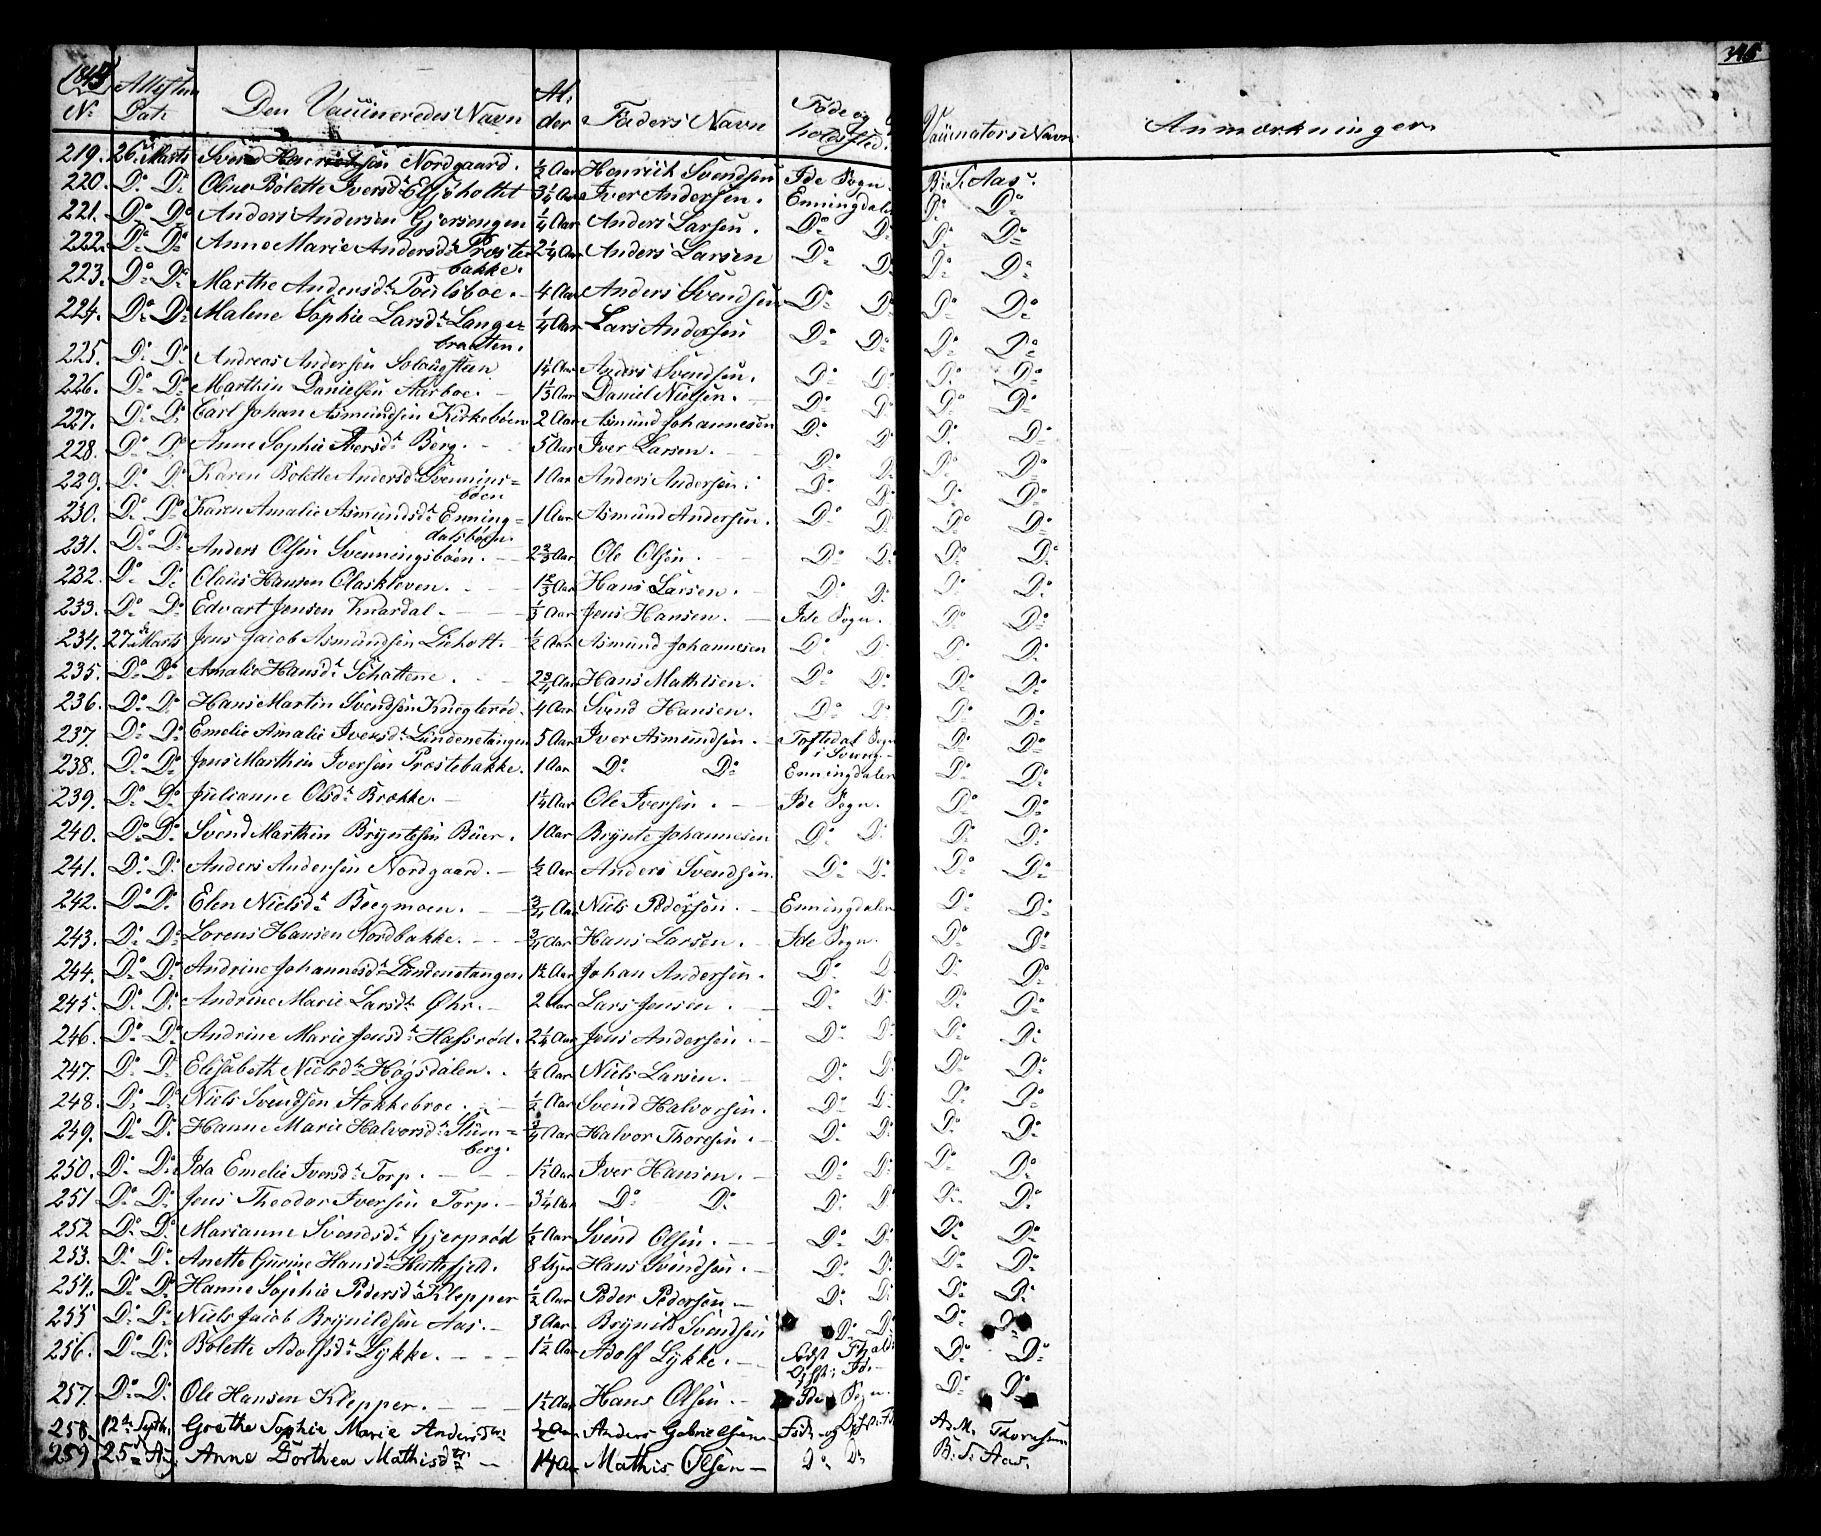 1844 Attesten Den Vaccineredes Navn Al- Faders Navn Føde og Vaccinators Navn Anmærkninger 345
No Dat: der holdssted.
219. 26de Marts Svend Henrichsen Nordgaard. ½ Aar Henrich Svendsen Ide Sogn. B: S: Aas.
220. Do Do Oline Bolette Iversdr Elsjöholtet 3¼ Aar Iver Andersen. Enningdalen Do Do
221. Do Do Anders Andersen Gjersengen ¼ Aar Anders Larsen. Do Do Do Do
222. Do Do Anne Marie Andersdr Præste- 2¼ Aar Anders Larsen Do Do Do Do
bakke.
223. Do Do Marthe Andersdr Poulsboe. 4 Aar Anders Svendsen Do Do Do Do
224. Do Do Malene Sophie Larsdr Lange- ¼ Aar Lars Andersen Do Do Do Do
braaten.
225. Do Do Andreas Andersen Solaugstuen 1¼ Aar Anders Svendsen. Do Do Do Do
226. Do Do Marthin Danielsen Aarboe. 1⅓ Aar Daniel Nielsen. Do Do Do Do
227. Do Do Carl Johan Asmundsen Kirkebøen 2 Aar Asmund Johannesen Do Do Do Do
228. Do Do Anne Sophie Iversdr Berg. 5 Aar Iver Larsen. Do Do Do Do
229. Do Do Karen Bolette Andersdr Svennings= 1 Aar Anders Andersen. Do Do Do Do
bøen
230. Do Do Karen Amalie Asmundsdr Enning= 1 Aar Asmund Andersen. Do Do Do Do
dalsbøen.
231. Do Do Anders Olsen Svenningsbøen. 2⅔ Aar Ole Olsen. Do Do Do Do
232. Do Do Claus Hansen Olaskleven. 1⅔ Aar Hans Larsen. Do Do Do Do
233. Do Do Edvart Jensen Knardal. ⅓ Aar Jens Hansen. Ide Sogn. Do Do
234. 27de Marts Jens Jacob Asmundsen Lieholt. ½ Aar Asmund Johannesen Do Do Do Do
235. Do Do Amalie Hansdr Schattene. 2¾ Aar Hans Mathisen. Do Do Do Do
236. Do Do Hans Martin Svendsen Knegterød. 4 Aar Svend Hansen. Do Do Do Do
237. Do Do Emelie Amalie Iversdr Lundenetangen 5 Aar Iver Asmundsen. Toftedal Sogn Do Do
i Sverrig
238. Do Do Jens Marthin Iversen Præstebakke. 1 Aar Do Do Enningdalen Do Do
239. Do Do Julianne Olsdr Brække. 1¼ Aar Ole Iversen. Ide Sogn. Do Do
240. Do Do Svend Marthin Bryntesen Buer. 1 Aar Brynte Johannesen Do Do Do Do
241. Do Do Anders Andersen Nordgaard. ½ Aar Anders Svendsen. Do Do Do Do
242. Do Do Elen Nielsdr Bergmoen. ¾ Aar Niels Pedersen. Enningdalen Do Do
243. Do Do Lorens Hansen Nordbakke. ¾ Aar Hans Larsen. Ide Sogn. Do Do
244. Do Do Andrine Johannesdr Lundenetangen 1½ Aar Johan Andersen. Do Do Do Do
245. Do Do Andrine Marie Larsdr Øhr. 2 Aar Lars Jensen. Do Do Do Do
246. Do Do Andrine Marie Jensdr Hafsrød. 2¼ Aar Jens Andersen. Do Do Do Do
247. Do Do Elisabeth Nielsdr Høgsdalen. ½ Aar Niels Larsen. Do Do Do Do
248. Do Do Niels Svendsen Stokkebroe. ½ Aar Svend Halvorsen. Do Do Do Do
249. Do Do Hanne Marie Halvorsdr Stum= ¾ Aar Halvor Thoresen. Do Do Do Do
berg.
250. Do Do Ida Emelie Iversdr Torp. 1½ Aar Iver Hansen. Do Do Do Do
251 Do Do Jens Theodor Iversen Torp. 3¼ Aar Do Do Do Do Do Do
252 Do Do Marianne Svendsdr Gjerprød ½ Aar Svend Olsen. Do Do Do Do
253. Do Do Anette Gurine Hansdr Hattefjeld. 8 Uger Hans Svendsen. Do Do Do Do
254. Do Do Hanne Sophie Pedersdr Klepper ½ Aar Peder Pedersen Do Do Do Do
255 Do Do Niels Jacob Brynildsen Aas. 3 Aar. Brynild Svendsen Do Do Do Do
256. Do Do Bolette Adolfsdr Lykke. 1½ Aar Adolf Lykke. Født Do Do
Ide
257. Do Do Ole Hansen Klepper. 1½ Aar Hans Olsen. Ide Sogn. Do Do
258. 12te Septbr. Grethe Sophie Marie Andersdtr: ½ Aar. Anders Gabrielsen Føde- og A: M: Thoresen.
259. 25de Anne Dorthea Mathisdtr: 1¼ Aar Mathis Olsen Do Do B: S: Aas.